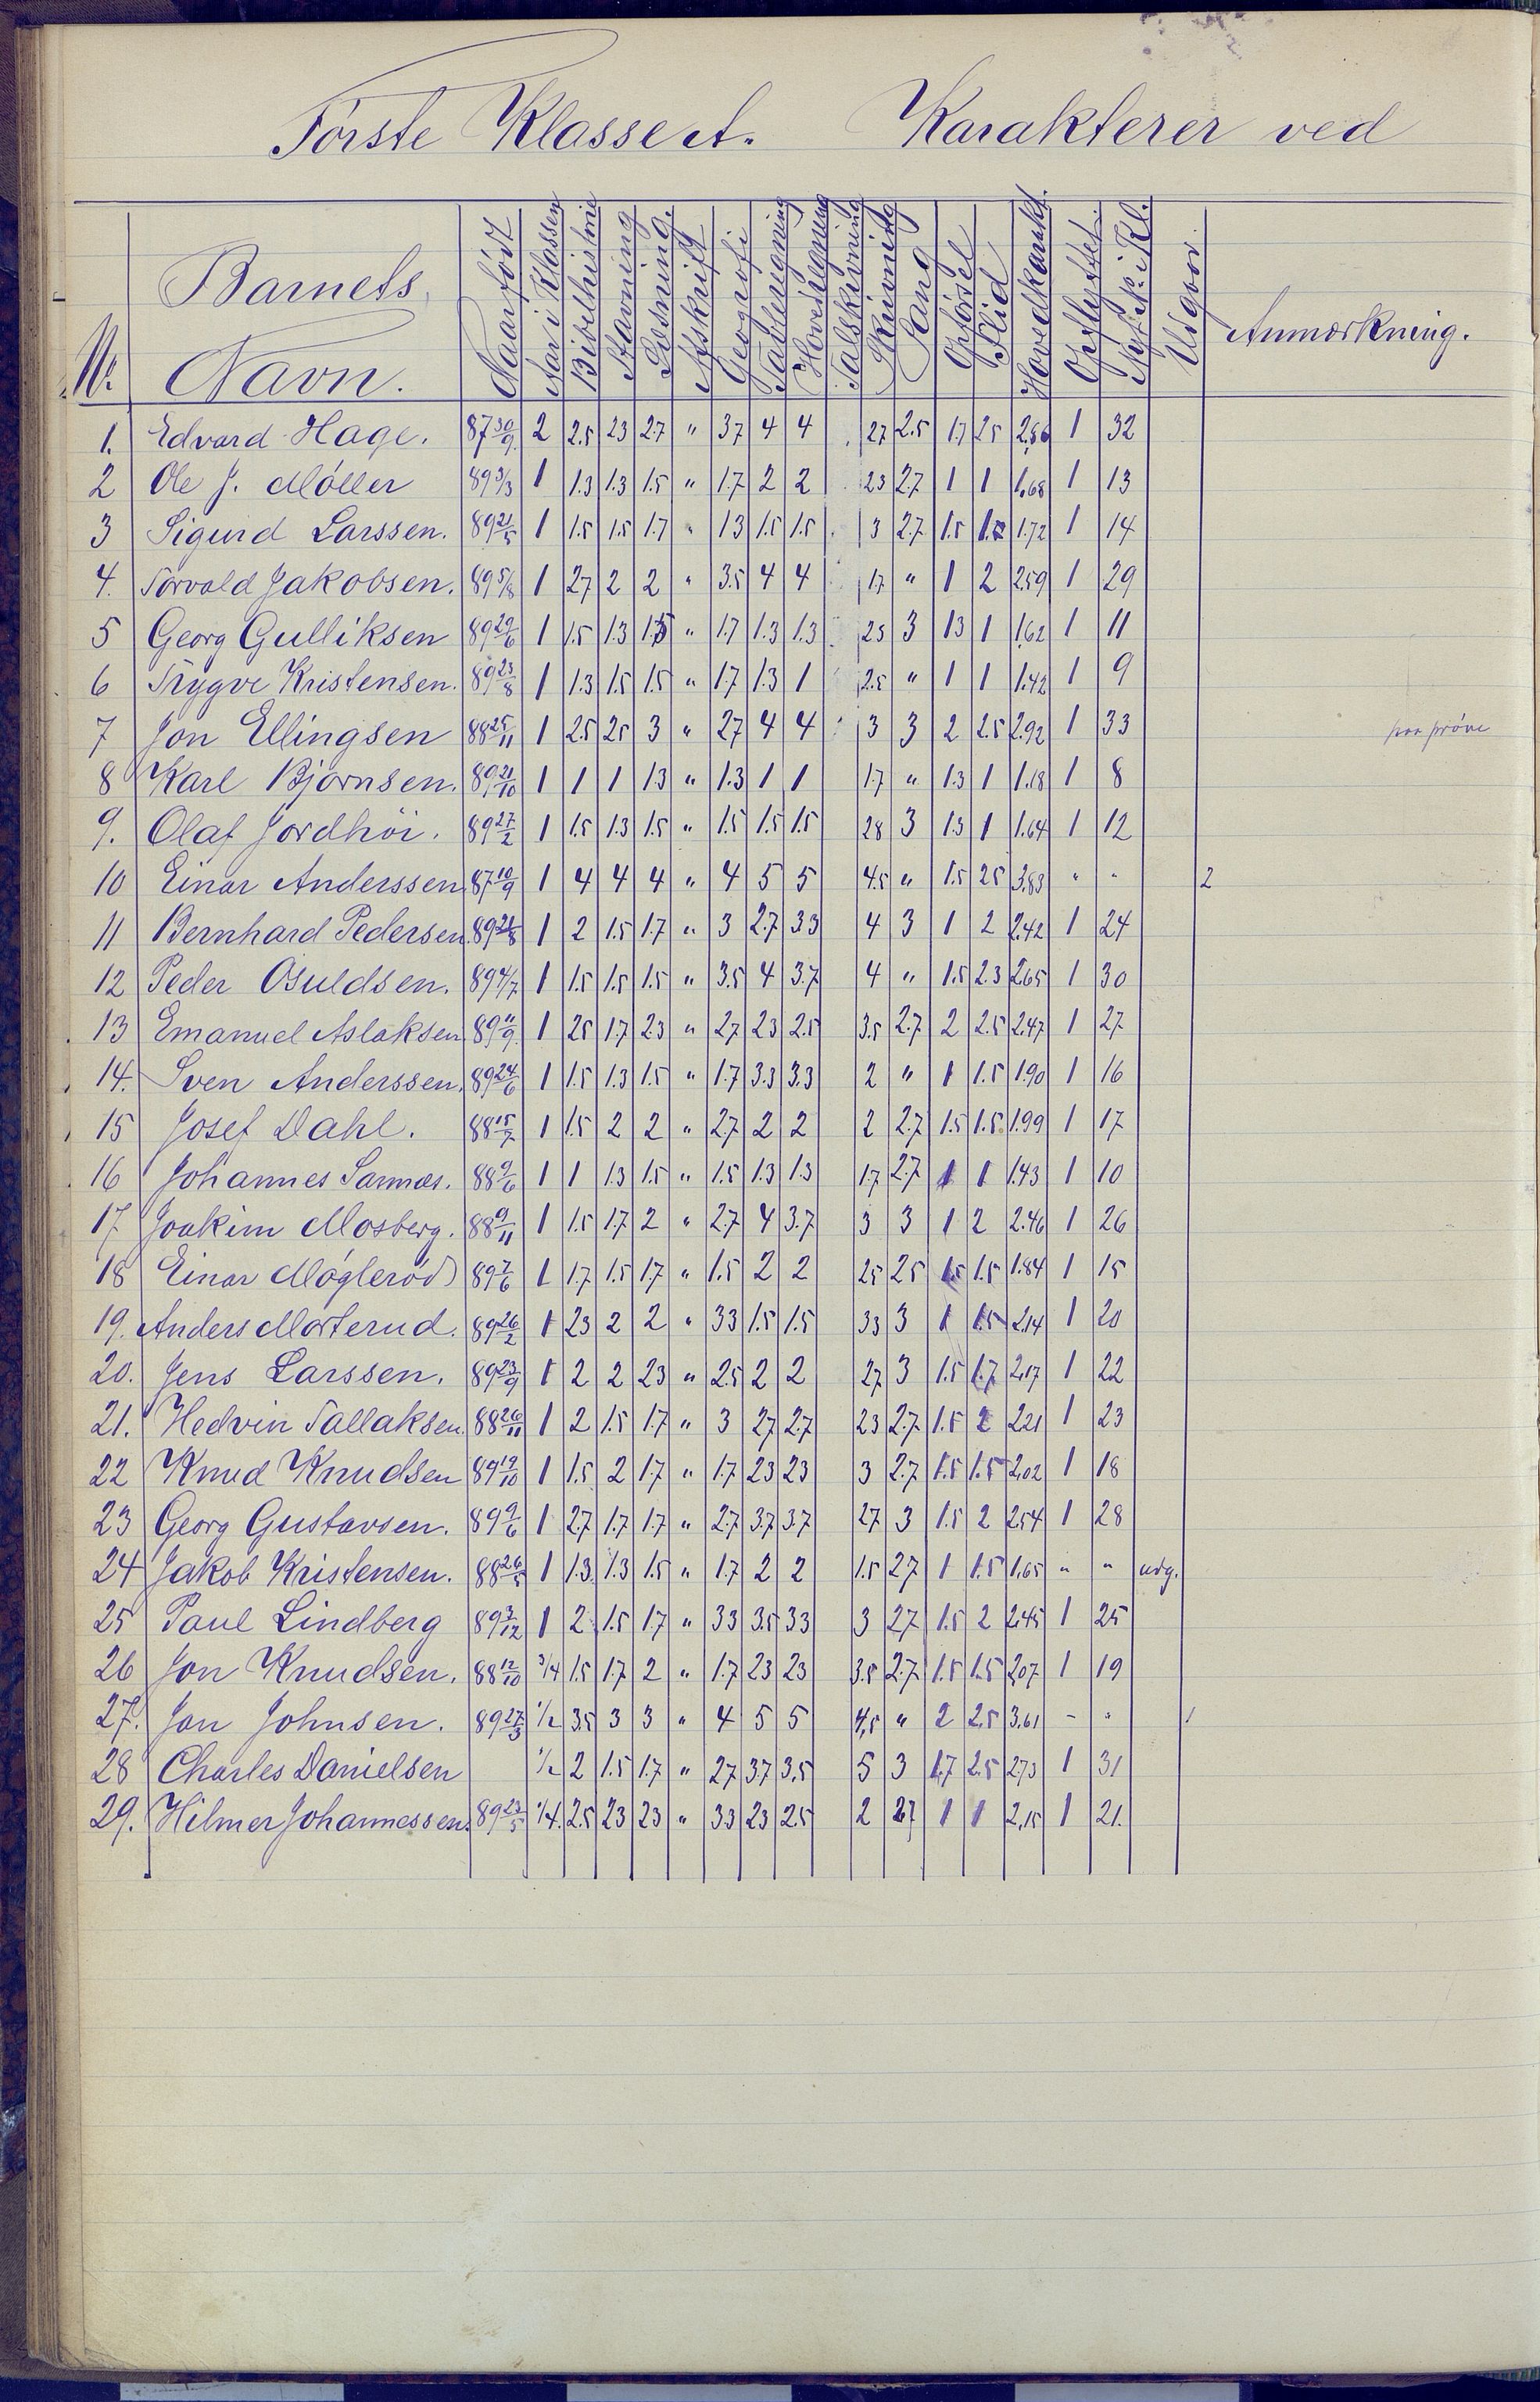 Første Klasse A. Karakterer ved
No. Barnets Navn. Naar født Aar i Klassen Bibelhistorie Stavning Læsning. Afskrift Geografi Tavleregning Hovedregning Talskrivning Skrivning Sang Opførsel Flid Hovedkarakt. Opflyttet. Nyt No. i Kl. Udgaar. Anmærkning.
1. Edvard Hage. 87 30/9 2 2.5 23 2.7 " 37 4 4 27 2.5 1.7 25 2,86 1 32
2 Ole J. Møller 89 3/3 1 1.3 1.3 1.5 " 1.7 2 2 23 2.7 1 1 1,68 1 13
3 Sigurd Larssen. 89 21/5 1 1.5 1.5 1.7 " 13 1.5 1.5 3 2.7 1.5 1.7 1.72 1 14
4. Torvald Jakobsen. 89 5/8 1 27 2 2 " 3.5 4 4 1.7 " 1 2 259 1 29
5 Georg Gulliksen 89 29/6 1 1.5 1.3 1.5 " 1.7 1.3 1.3 25 3 13 1 1,62 1 11
6 Trygve Kristensen. 89 23/8 1 1.3 1.5 1.5 " 1.7 1.3 1 2.5 " 1 1 1.42 1 9
7 Jon Ellingsen 88 25/11 1 2.5 25 3 " 27 4 4 3 3 2 2.5 2.92 1 33 paa prøve
8 Karl Bjørnsen. 89 21/10 1 1 1 1.3 " 1.3 1 1 1.7 " 1.3 1 1.18 1 8
9. Olaf Jordhøi. 89 27/2 1 1.5 1.3 1.5 " 1.5 1.5 1.5 28 3 1.3 1 1.64 1 12
10 Einar Anderssen. 87 10/9 1 4 4 4 " 4 5 5 4.5 " 1.5 25 3,83 " " 2
11 Bernhard Pedersen. 89 21/8 1 2 1.5 1.7 " 3 2.7 33 4 3 1 2 2.42 1 24
12 Peder Osuldsen. 89 4/7 1 1.5 1.5 1.5 " 3.5 4 3.7 4 " 1.5 2.3 2.65 1 30
13 Emanuel Aslaksen. 89 11/9 1 25 1.7 23 " 27 23 2.5 3.5 2.7 2 2.5 2.47 1 27
14. Sven Anderssen. 89 24/6 1 1.5 1.3 1.5 " 1.7 3.3 3.3 2 " 1 1.5 1.90 1 16
15 Josef Dahl. 88 15/7 1 1.5 2 2 " 27 2 2 2 2.7 1.5 1.5 1.99 1 17
16 Johannes Sannæs. 88 9/6 1 1 1.3 1.5 " 1.5 1.3 1.3 1.7 2.7 1 1 1.43 1 10
17 Joakim Mosberg. 88 9/11 1 1.5 1.7 2 " 2.7 4 3.7 3 3 1 2 2.46 1 26
18 Einar Møglerød 89 7/6 1 1.7 1.5 1.7 " 1.5 2 2 25 25 1.5 1.5 1.84 1 15
19. Anders Morterud. 89 26/2 1 23 2 2 " 33 1.5 1.5 33 3 1 1.5 2.14 1 20
20. Jens Larssen. 89 23/9 1 2 2 23 " 2.5 2 2 27 3 1.5 1.7 2,17 1 22
21. Hedvin Tallaksen. 88 26/11 1 2 1.5 1.7 " 3 27 2.7 23 2.7 1.5 2 221 1 23
22 Knud Knudsen 89 19/10 1 1.5 2 1.7 " 1.7 23 23 3 2.7 1.5 1.5 2,02 1 18
23 Georg Gustavsen. 89 9/6 1 2.7 1.7 1.7 " 2.7 3.7 3.7 27 3 1.5 2 2.54 1 28
24 Jakob Kristensen. 88 26/5 1 1.3 1.3 1.5 " 1.7 2 2 1.5 27 1 1.5 1,65 " " udg.
25 Paul Lindberg 89 3/12 1 2 1.5 1.7 " 33 3.5 33 3 27 1.5 2 2,45 1 25
26 Jon Knudsen. 88 12/10 3/4 1.5 1.7 2 " 1.7 23 23 3.5 2.7 1.5 1.5 2,07 1 19
27. Jan Johnsen. 89 27/3 1/2 3.5 3 3 " 4 5 5 4,5 " 2 2.5 3,61 - " 1
28 Charles Danielsen 1/2 2 1.5 1.7 " 27 3.7 3,5 5 3 1.7 2.5 2,73 1 31
29. Hilmer Johannessen. 89 23/5 1/4. 2.5 23 23 " 33 23 2.5 2 27 1 1 2,15 1 21.